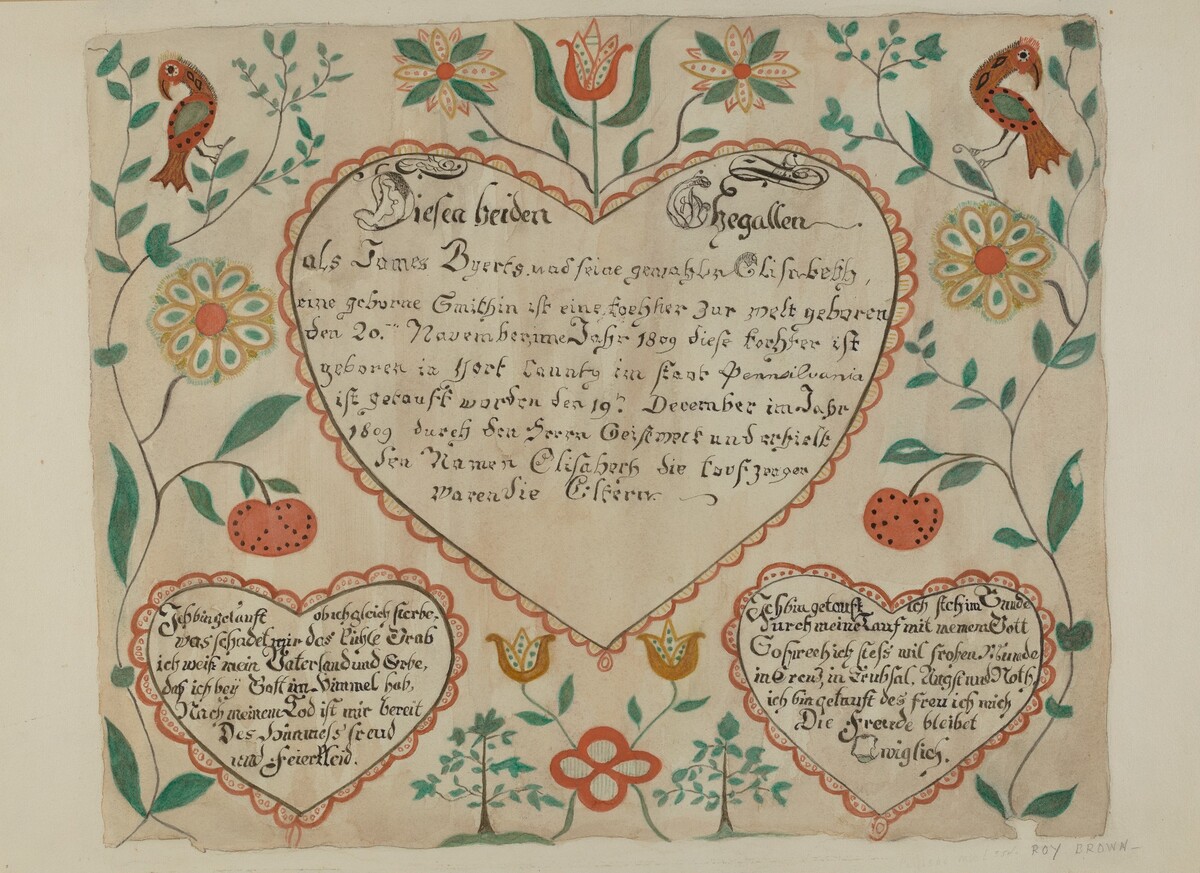 Diesen beiden Ehegatten
als James Byerts und seine gemahlin Elisabeth,
eine geborne Smithin ist eine tochter zur welt geboren
den 20.ten November im Jahr 1809 diese tochter ist
geboren in York Caunty im staat Pennsilvania
ist getauft worden den 19t December im Jahr
1809 durch den Herrn Geistweit und erhielt
den Namen Elisabeth die taufzeugen
waren die Eltern
Ich bin getauft ob ich gleich sterbe,
was schadet mir das kühle Grab
ich weiß mein Vaterland und Erbe,
daß ich bey Gott im Himmel hab,
Nach meinem Tod ist mir bereit
Des Himmels freud
und Feierkleid.
Ich bin getauft ich steh im Bunde
durch meine Tauf mit meinem Gott
So sprech ich stets mit frohem Munde
in Creuz, in Trübsal, Angst und Noth,
ich bin getauft des freu ich mich
Die Freude bleibet
Ewiglich.
ROY BROWN